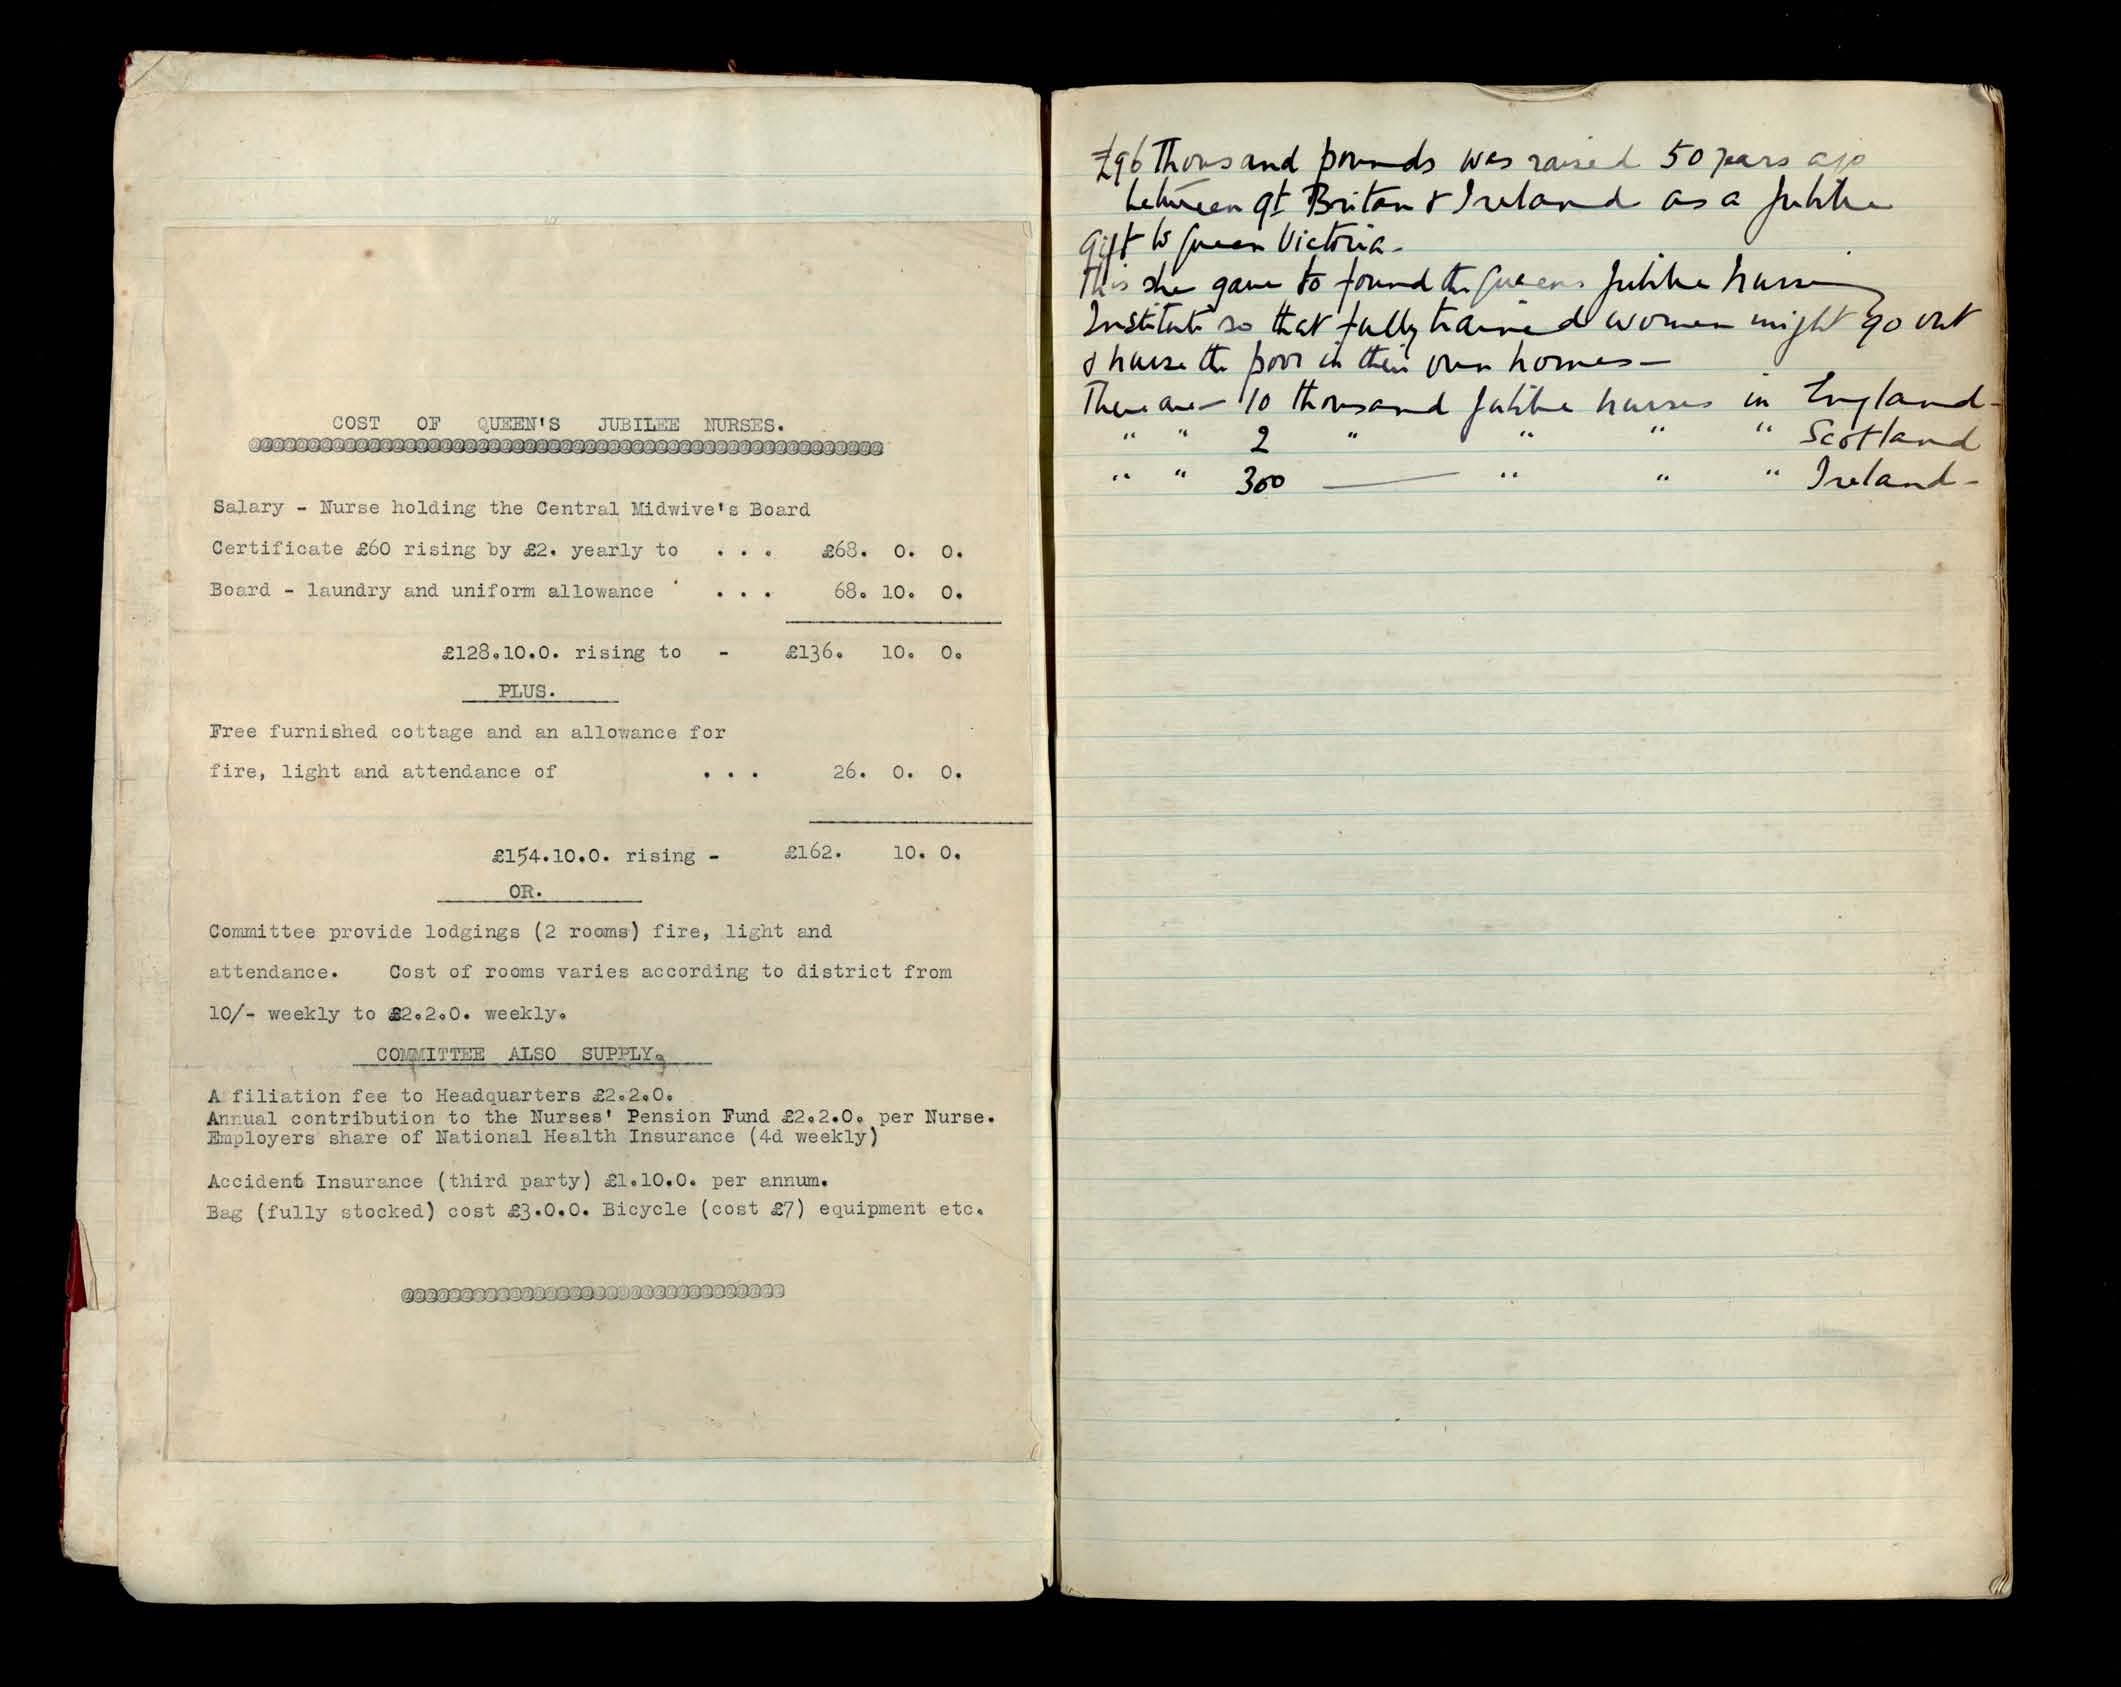 COST OF QUEEN'S JUBILEE NURSES.
@@@@@@@@@@@@@@@@@@@@@@@@@@@@@@@@@@@@@@@@@@@@@@@@@@@@@
Salary - Nurse holding the Central Midwive's Board
Certificate £60 rising by £2. yearly to . . . £68. 0. 0.
Board - laundry and uniform allowance . . . 68. 10. 0.
£128.10.0. rising to - £136. 10. 0.
PLUS.
Free furnished cottage and an allowance for
fire, light and attendance of . . . 26. 0. 0.
£154.10.0. rising - £162. 10. 0.
OR.
Committee provide lodgings (2 rooms) fire, light and
attendance. Cost of rooms varies according to district from
10/- weekly to £2.2.0. weekly.
COMMITTEE ALSO SUPPLY.
Affiliation fee to Headquarters £2.2.0.
Annual contribution to the Nurses' Pension Fund £2.2.0. per Nurse.
Employers share of National Health Insurance (4d weekly)
Accident Insurance (third party) £1.10.0. per annum.
Bag (fully stocked) cost £3.0.0. Bicycle (cost £7) equipment etc.
@@@@@@@@@@@@@@@@@@@@@@@@@@@@@@@@
£96 Thousand pounds was raised 50 years ago
between Gt Britan & Ireland as a Jubilee
gift to Queen Victoria -
This she gave to found the Queens Jubilee Nursing
Institute so that fully trained women might go out
& nurse the poor in their own homes -
There are - 10 thousand Jubilee nurses in England -
" " 2 " " " " Scotland
" " 300 — " " " Ireland -